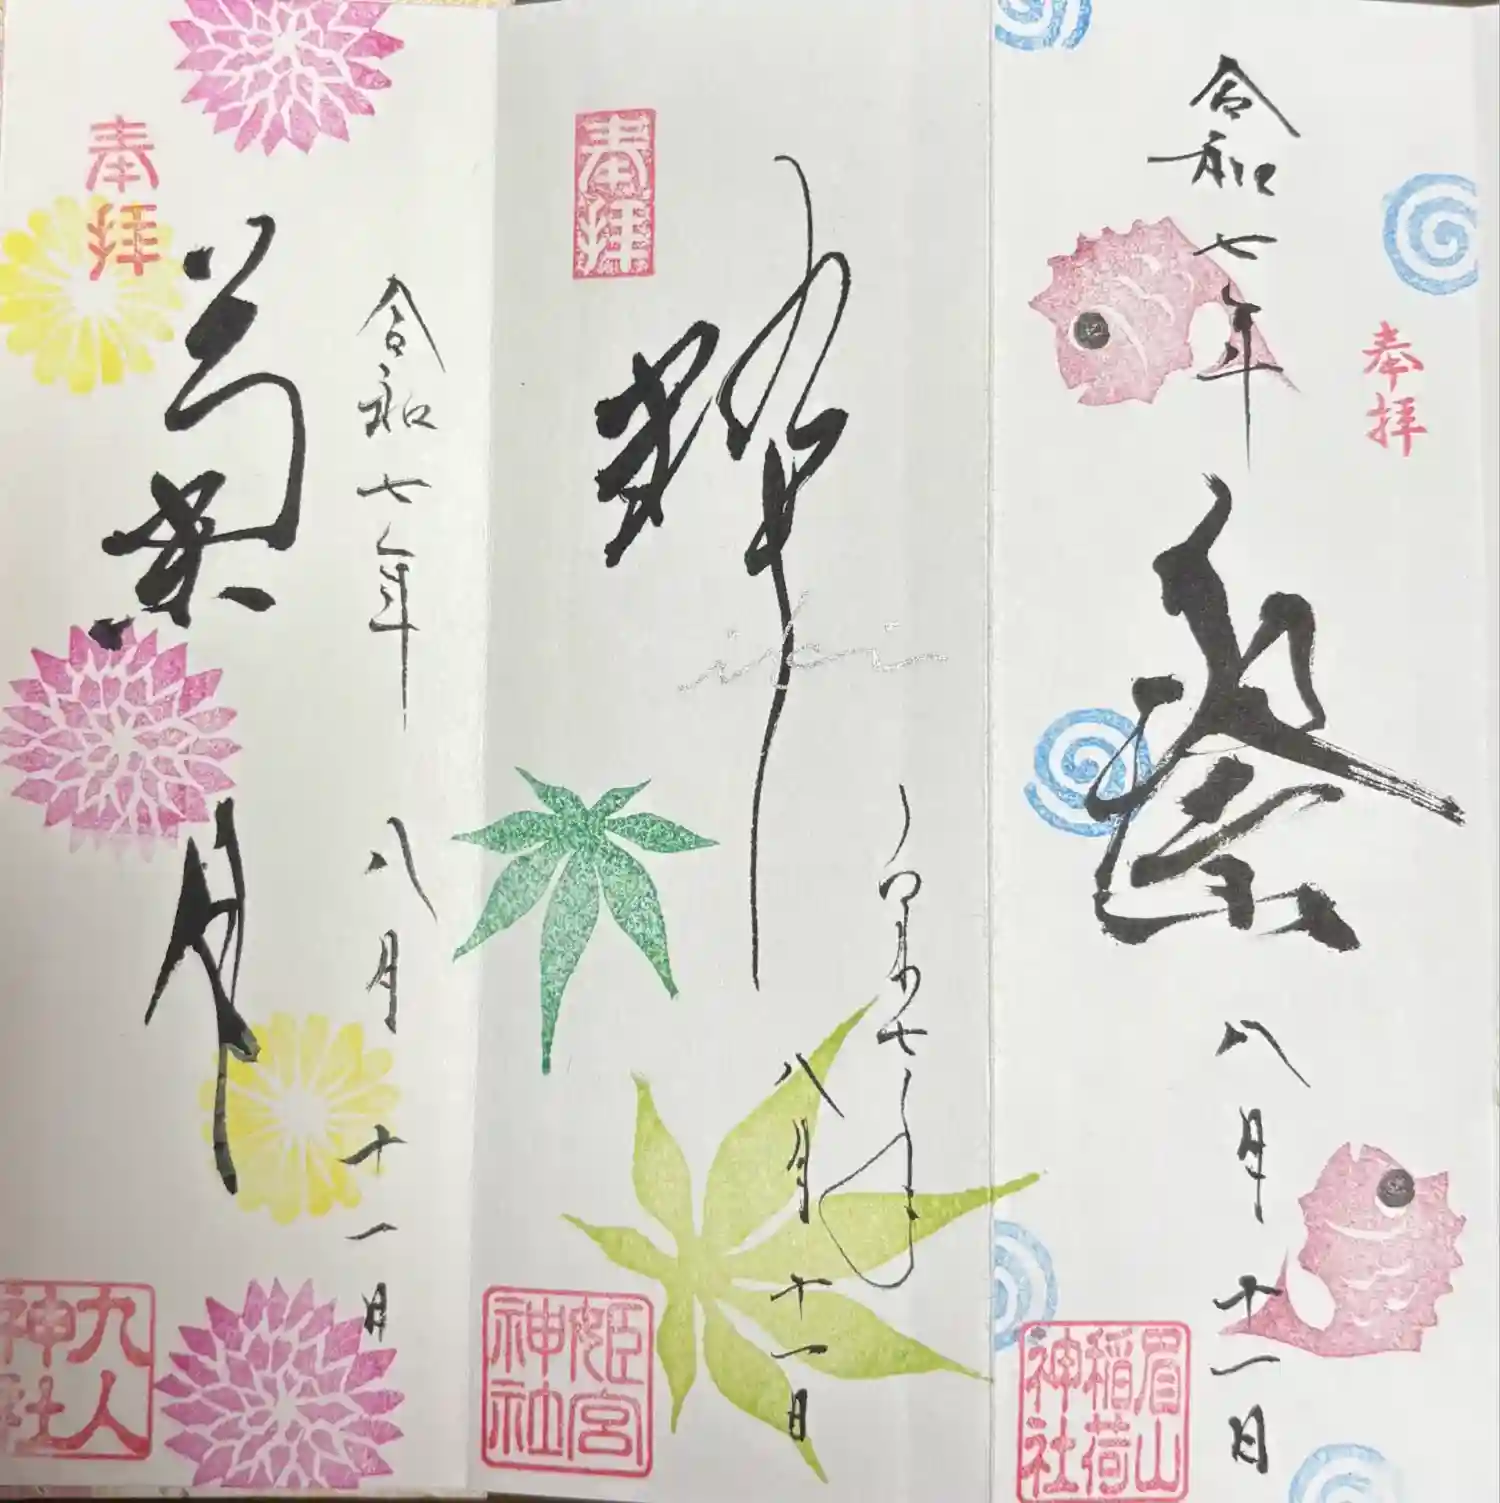 奉拝
令和七年 八月十一日
眉山
稲荷
神社
奉拝
令和七年
八月十一日
姫宮
神社
奉拝
令和七年 八月十一日
菊月
九人
神社